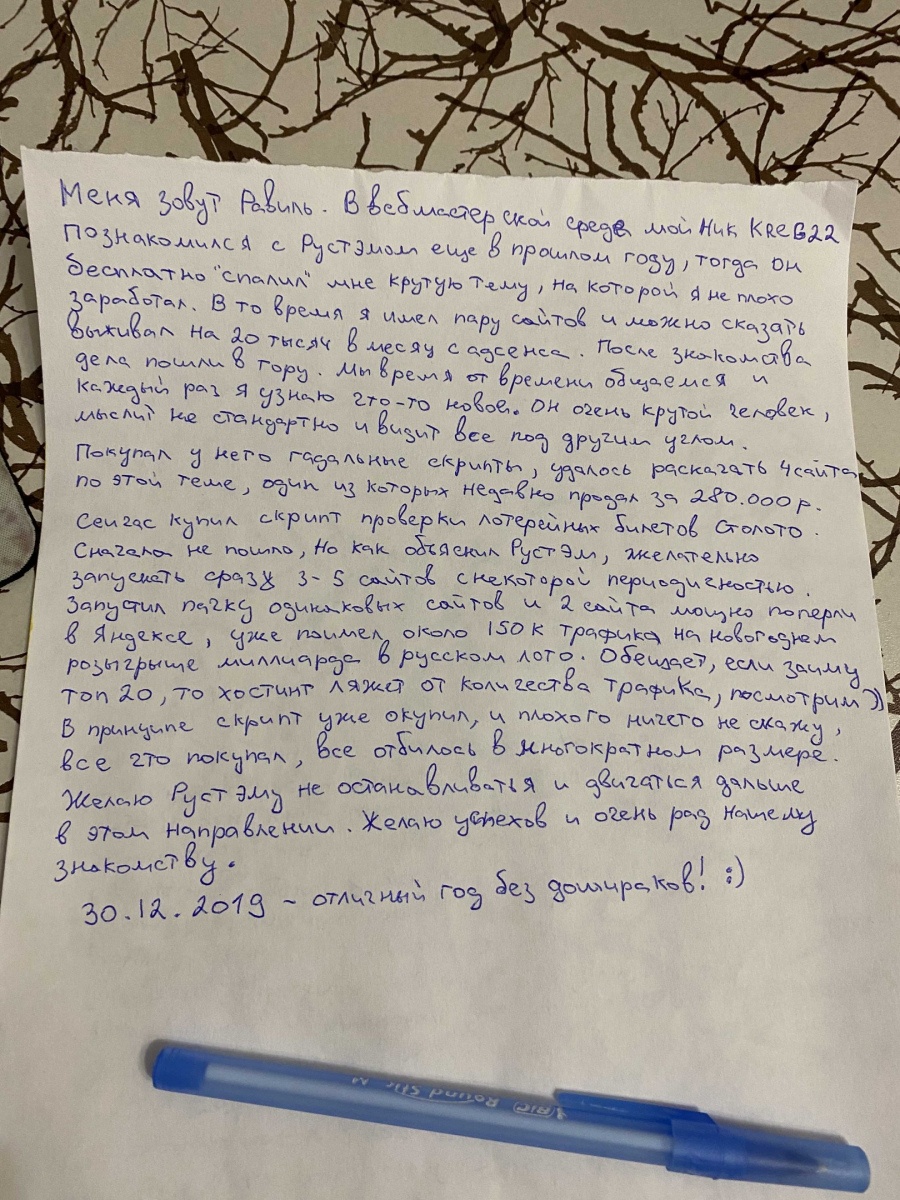 Меня зовут Равиль. В вебмастерской среде мой Ник KREB22
Познакомился с Рустэмом еще в прошлом году, тогда он
бесплатно "спалил" мне крутую тему, на которой я не плохо
заработал. В то время я имел пару сайтов и можно сказать
выживал на 20 тысяч в месяц с адсенса. После знакомства
дела пошли в гору. Мы время от времени общаемся и
каждый раз я узнаю что-то новое. Он очень крутой человек,
мыслит не стандартно и видит все под другим углом.
Покупал у него гадальные скрипты, удалось раскачать 4 сайта
по этой теме, один из которых недавно продал за 280.000 р.
Сейчас купил скрипт проверки лотерейных билетов Столото.
Сначала не пошло, но как объяснил Рустэм, желательно
запускать сразу 3-5 сайтов с некоторой периодичностью.
Запустил пачку одинаковых сайтов и 2 сайта мощно поперли
в Яндексе, уже поимел около 150к трафика на новогоднем
розыгрыше миллиарда в русском лото. Обещает, если займу
топ 20, то хостинг ляжет от количества трафика, посмотрим))
В принципе скрипт уже окупил, и плохого ничего не скажу,
все что покупал, все отбилось в многократном размере.
Желаю Рустэму не останавливаться и двигаться дальше
в этом направлении. Желаю успехов и очень рад нашему
знакомству.
30.12.2019 - отличный год без дошираков! :)
BIC Round Stic M